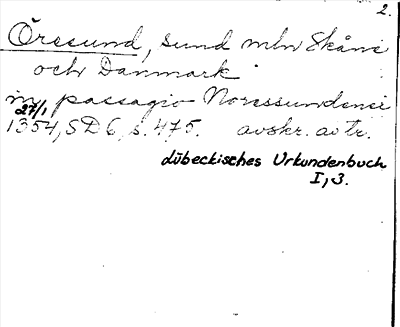 2.
Öresund, sund mln Skåne
och Danmark
in passagio Noressundensi
27/1
1354, SD 6, s. 475. avskr. av tr.
Lübeckisches Urkundenbuch
I, 3.